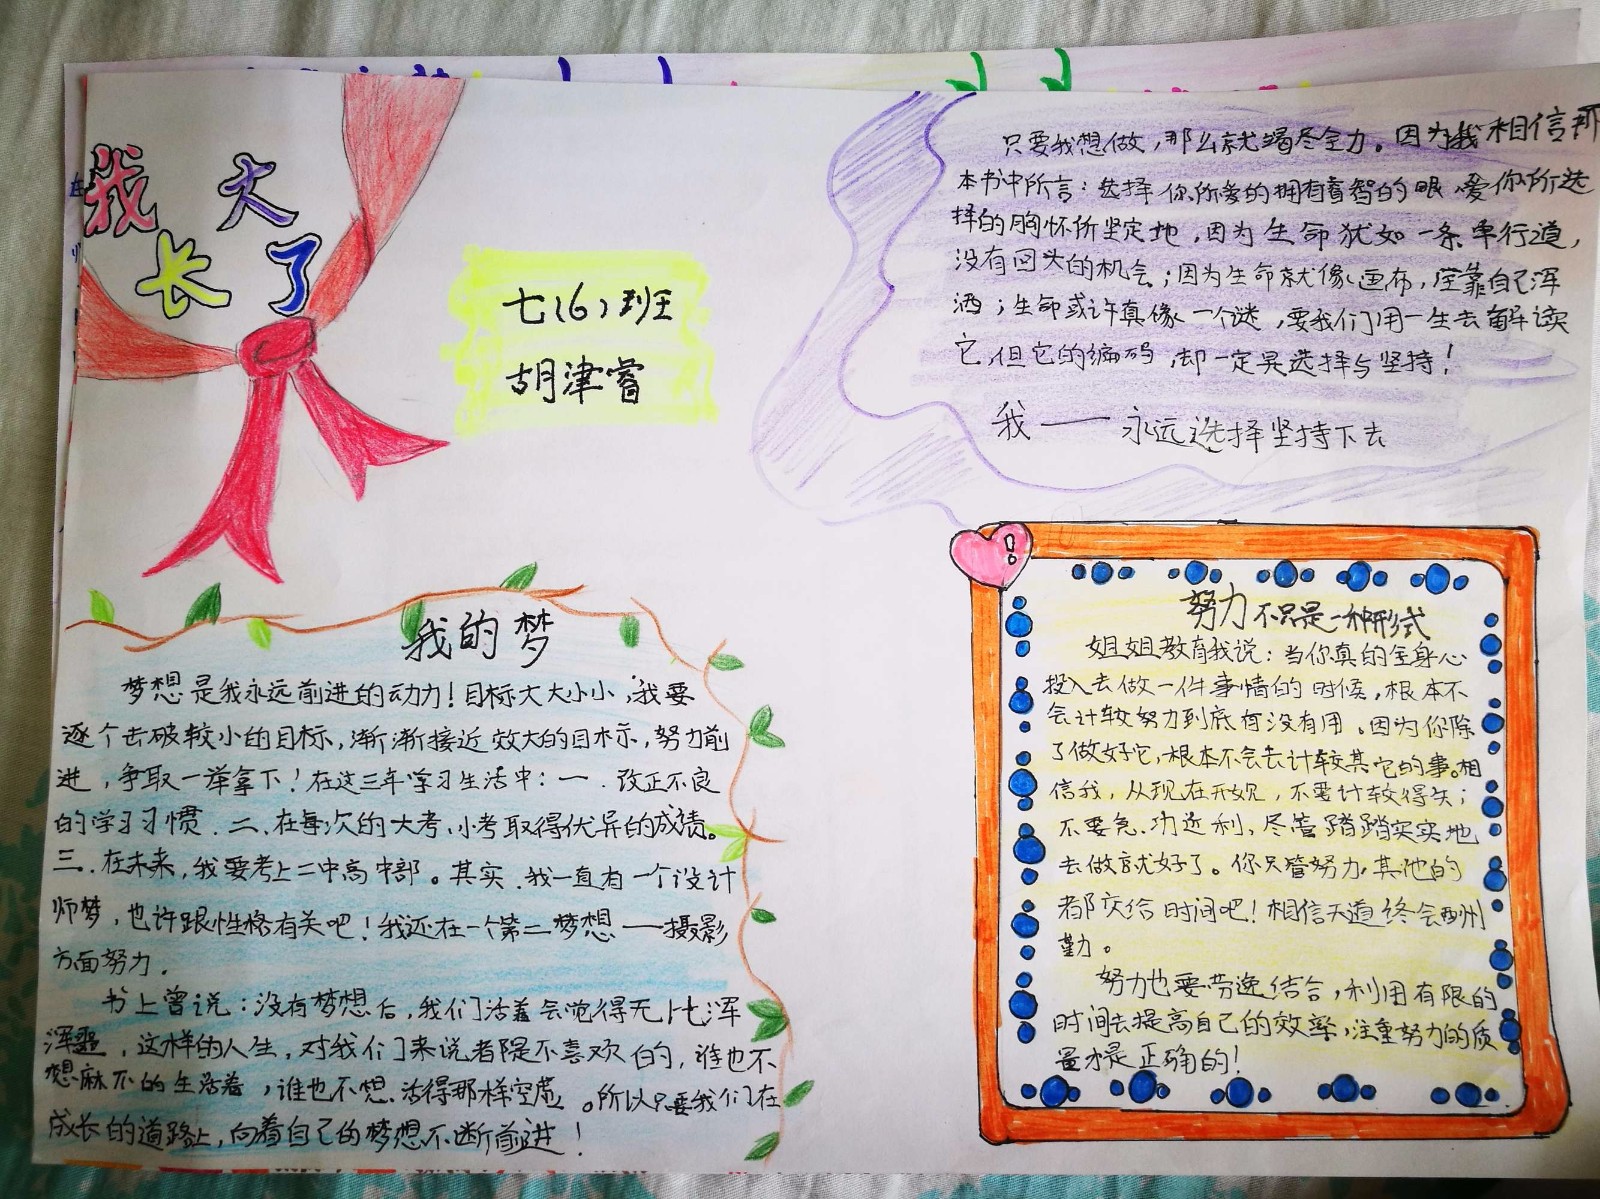 我大
长了
七(6)班
胡津睿
只要我想做,那么就竭尽全力。因为我相信那
本书中所言:选择你所爱的拥有睿智的眼,爱你所选
择的胸怀所坚定地,因为生命犹如一条单行道,
没有回头的机会;因为生命就像画布,全靠自己浑
洒;生命或许真像一个谜,要我们用一生去解读
它,但它的编码,却一定是选择与坚持!
我——永远选择坚持下去
我的梦
梦想是我永远前进的动力!目标大大小小,我要
逐个去破较小的目标,渐渐接近效大的目标,努力前
进,争取一举拿下!在这三年学习生活中:一.改正不良
的学习习惯.二.在每次的大考,小考取得优异的成绩。
三.在未来,我要考上二中高中部。其实,我一直有一个设计
师梦,也许跟性格有关吧!我还在一个第二梦想——摄影
方面努力.
书上曾说:没有梦想后,我们活着会觉得无比浑
浑噩,这样的人生,对我们来说都是不喜欢的,谁也不
想麻木的生活着,谁也不想活得那样空虚。所以只要我们在
成长的道路上,向着自己的梦想不断前进!
努力不只是一种形式
姐姐教育我说:当你真的全身心
投入去做一件事情的时候,根本不
会计较努力到底有没有用。因为你除
了做好它,根本不会去计较其它的事。相
信我,从现在开始,不要计较得失;
不要急功近利,尽管踏踏实实地
去做就好了。你只管努力,其他的
都交给时间吧!相信天道终会酬
勤。
努力也要劳逸结合,利用有限的
时间去提高自己的效率,注重努力的质
量才是正确的!